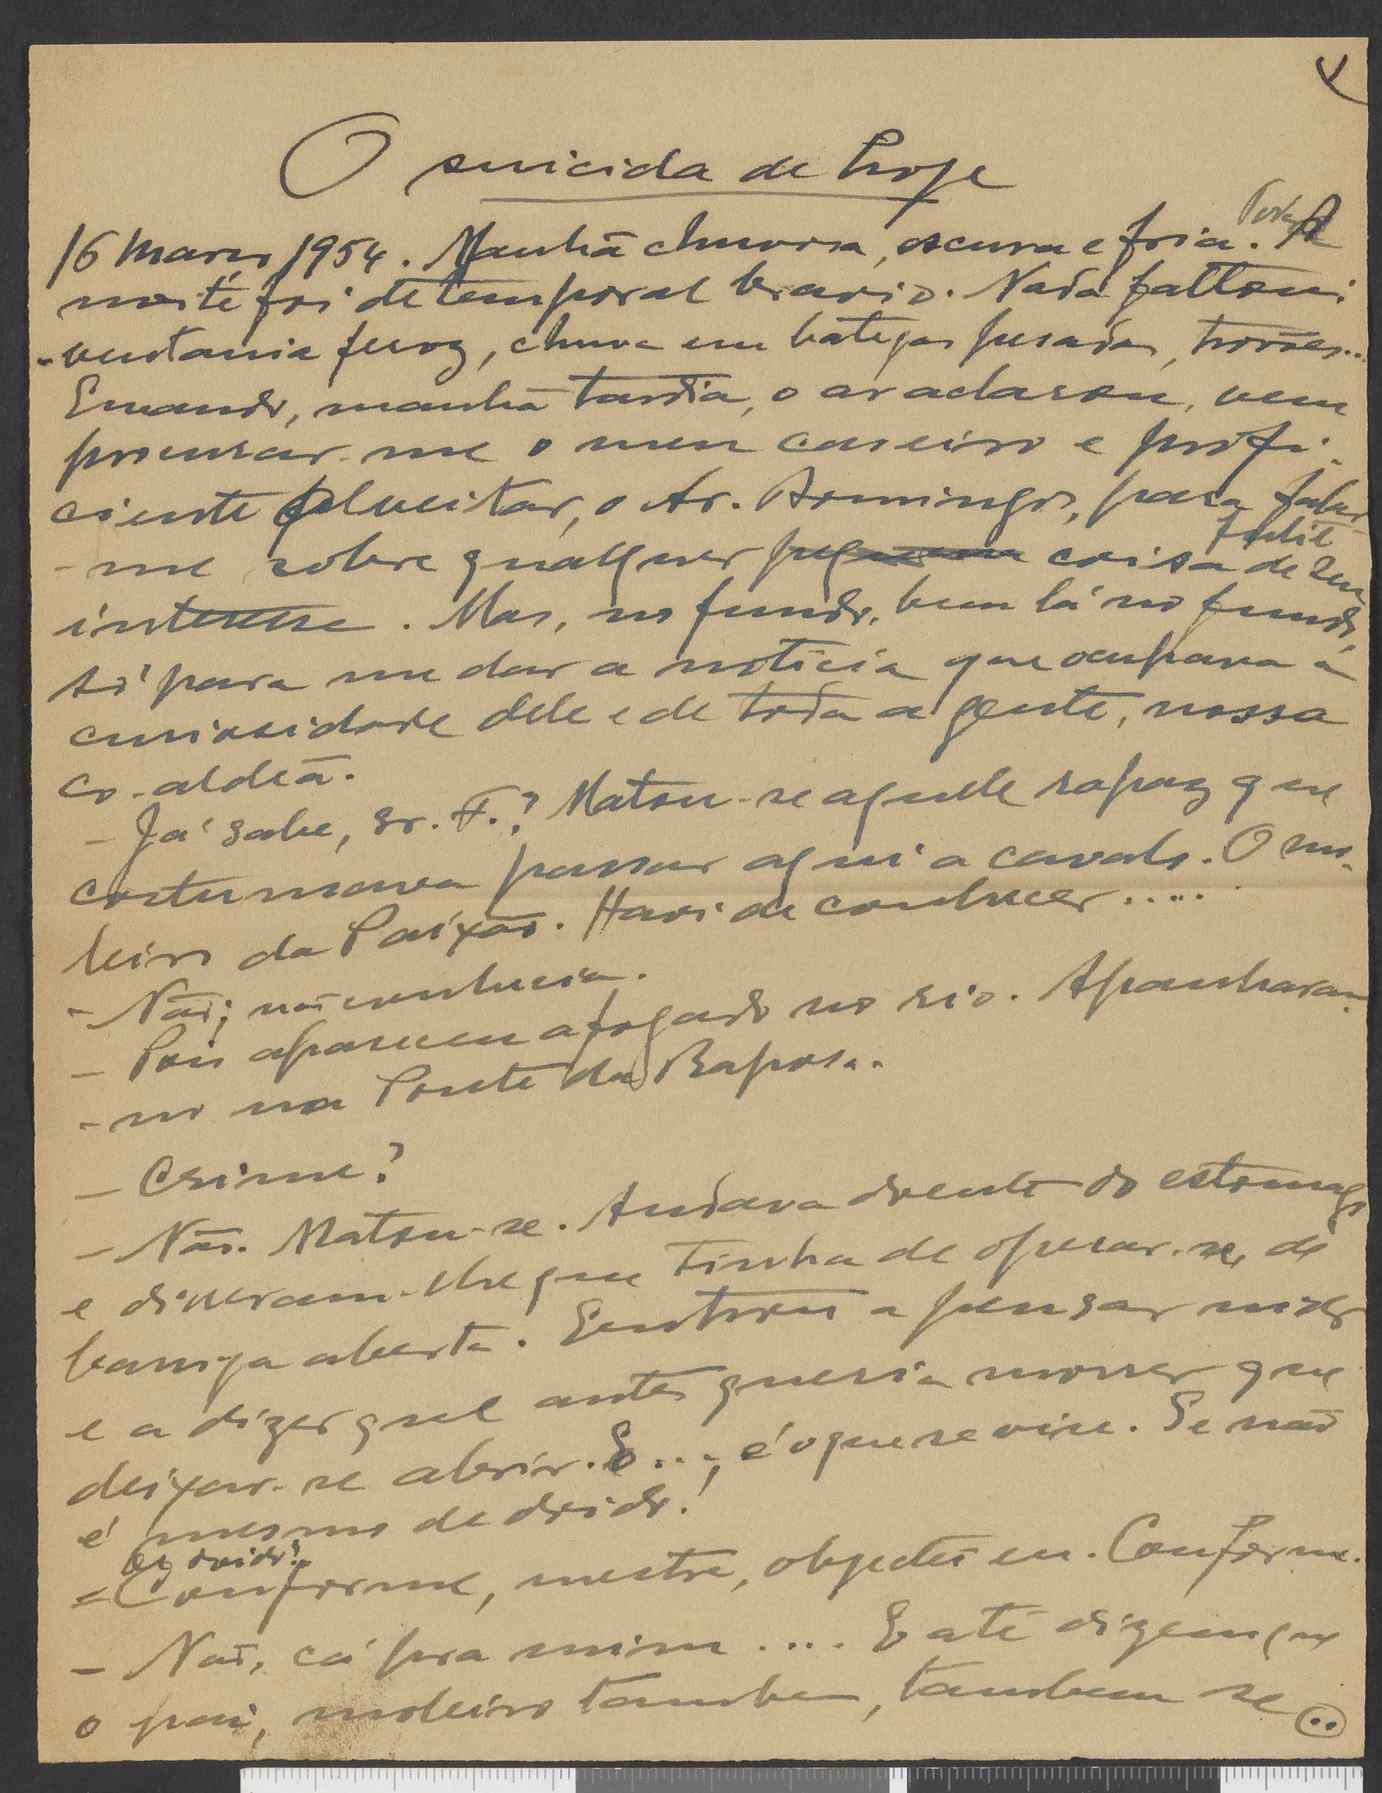 O suicida de hoje
16 março 1954. Manhã chuvosa, escura e fria. Toda a
noite foi de temporal bravio. Nada faltou:
-ventania feroz, chuva em bategas pesadas, trovões...
Enxando, manhã tardia, o ar aclarou, vem
procurar-me o meu caseiro e profi-
ciente, o Sr. Domingos, para falar-
-me sobre qualquer pequena coisa futil de sem
interesse. Mas, no fundo, bem lá no fundo,
só para me dar a noticia que ocupava a
curiosidade dele e de toda a gente, nossa
co-aldeã.
- Já sabe, Sr. F.? Matou-se aquele rapaz que
costumava passar aqui a cavalo. O mo-
leiro da Paixão. Havi de conhecer.....
- Não; não conhecia.
- Pois apareceu afogado no rio. Apanharam-
-no na Ponte da Raposa.
- Crime?
- Não. Matou-se. Andava doente do estomago
e disseram-lhe que tinha de operar-se, de
barriga aberta. Entrou a pensar nisso
e a dizer que antes queria morrer que
deixar-se abrir. E..., é o que se viu. Se não
é mesmo de doido!
de doido?
- Conforme, mestre, objectei eu. Conforme.
- Não, cá pra mim.... E até dizem que
o pai, moleiro tambem, tambem se